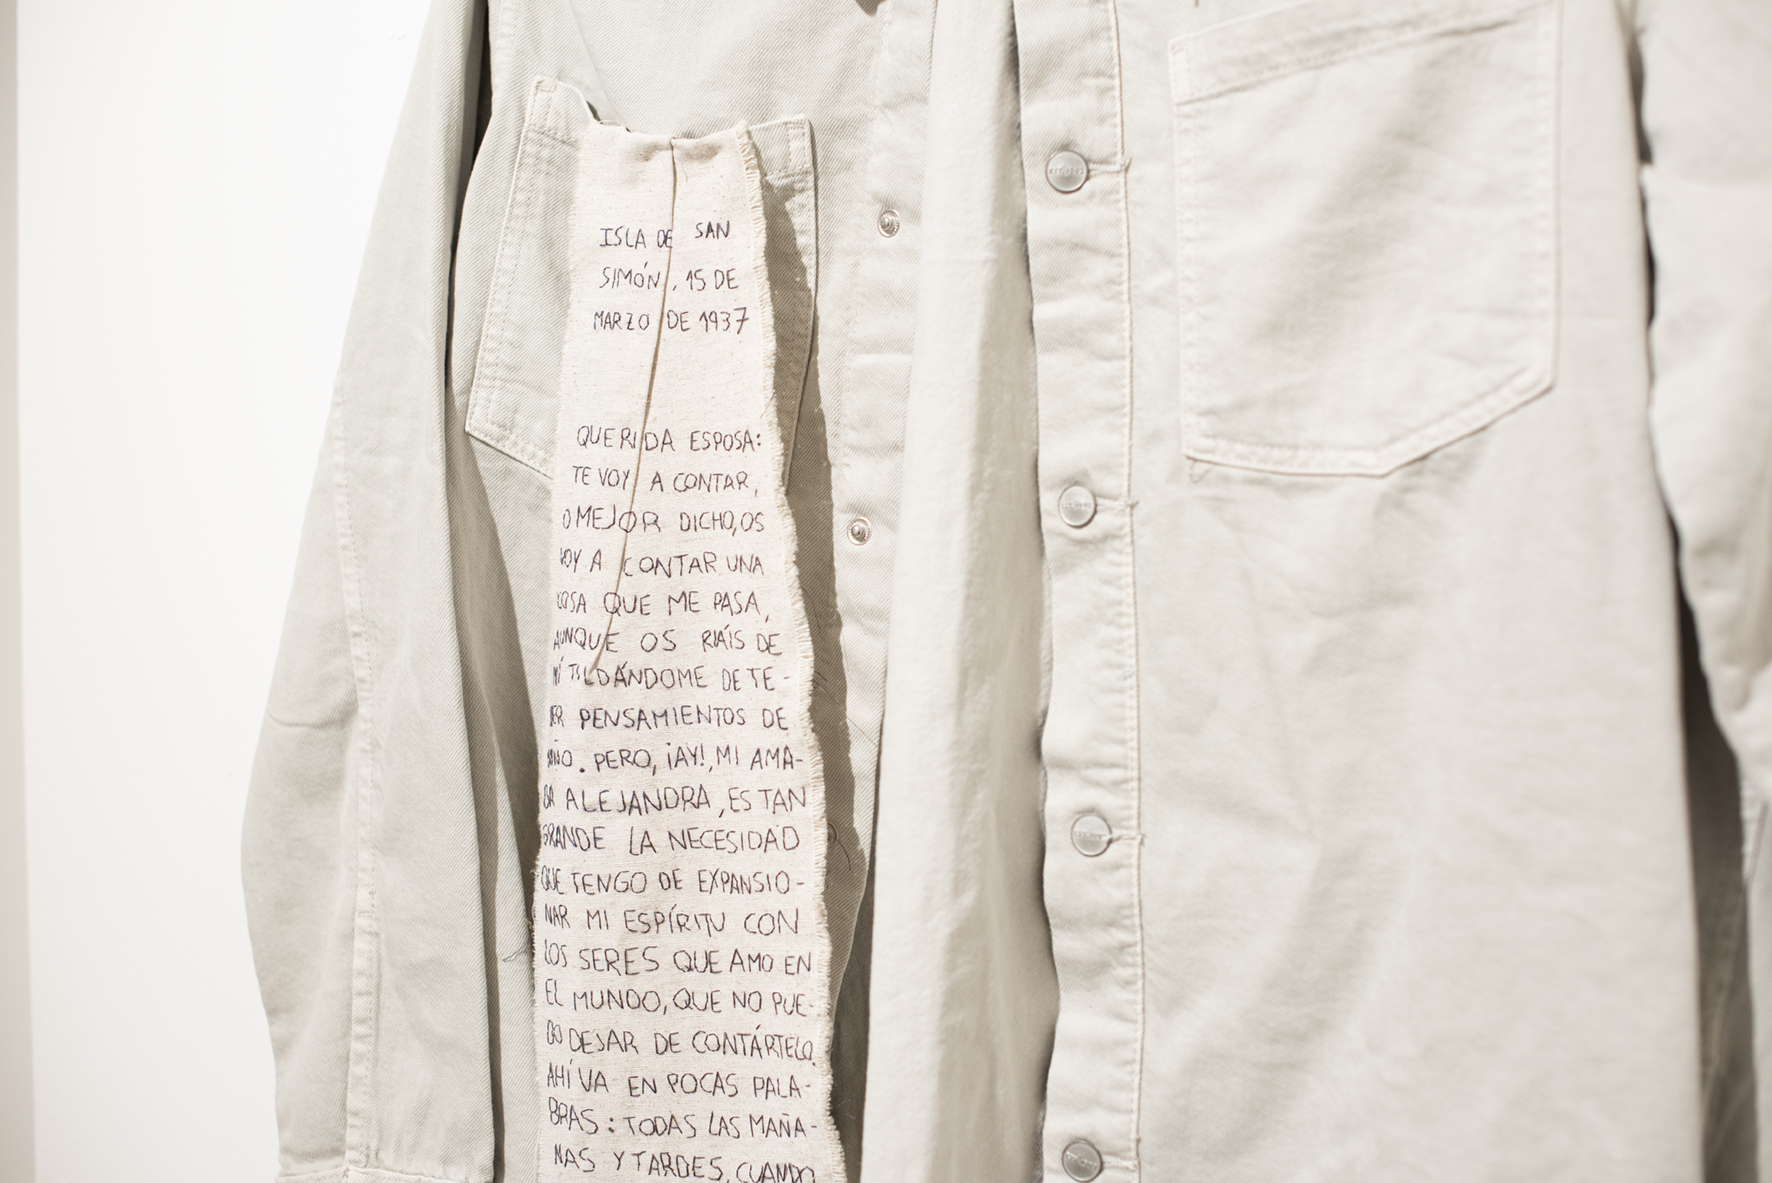 ISLA DE SAN
SIMÓN, 15 DE
MARZO DE 1937
QUERIDA ESPOSA:
TE VOY A CONTAR,
O MEJOR DICHO, OS
VOY A CONTAR UNA
COSA QUE ME PASA,
AUNQUE OS RIAÍS DE
MÍ TILDÁNDOME DE TE-
NER PENSAMIENTOS DE
NIÑO. PERO, ¡AY!, MI AMA-
DA ALEJANDRA, ES TAN
GRANDE LA NECESIDAD
QUE TENGO DE EXPANSIO-
NAR MI ESPÍRITU CON
LOS SERES QUE AMO EN
EL MUNDO, QUE NO PUE-
DO DESAR DE CONTÁRTELO.
AHÍ VA EN POCAS PALA-
BRAS: TODAS LAS MAÑA-
NAS Y TARDES, CUANDO